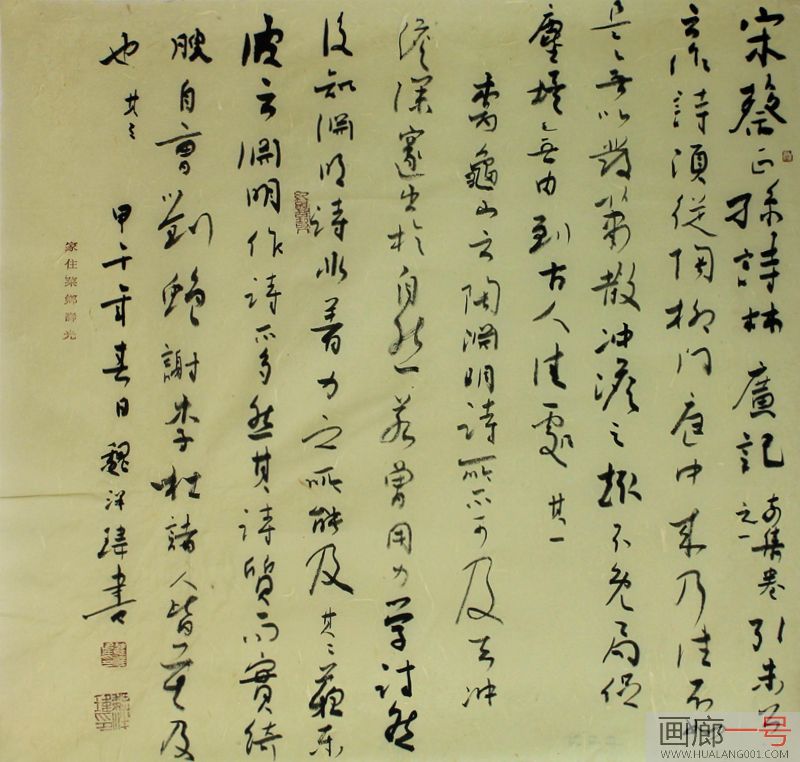 宋蔡正孫詩林廣記 前集卷之一 引朱公
云作詩須從陶柳門庭中來乃佳不如
是無以發蕭散沖澹之趣不免局促
塵埃無由到古人佳處 其一
楊龜山云陶淵明詩所不可及者沖
澹深邃出於自然若曾用力學詩然
後知淵明詩非着力之所能及 其二 蘇東
坡云淵明作詩不多然其詩質而實綺
腴自曹劉鮑謝李杜諸人皆莫及
也 其三
甲午年春日魏瑋書
家住鄉壽光
画廊一号
WWW.HUALANG001.COM